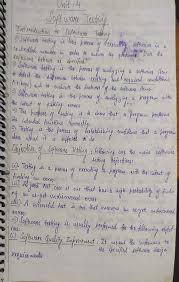 Unit-4
Software Testing
Introduction of Software Testing
Software testing is the process of executing software in a
controlled manner in order to answer the question Does the
software behave as specified?
Software testing is the process of analyzing a software item
to detect the difference between existing and required conditions
and to evaluate the features of the software item
Software testing is the process of analyzing a program with
the intent of finding errors
The purpose of testing is to show that a program
Testing is the process of establishing confidence that a program
does what it is supposed to
Objectives of Software Testing: Following are the main
testing objectives:
(i) Testing is a process of executing a program with the intent of
finding an error
(ii) A good test case is one that has a high probability of finding
an as-yet undiscovered error
(iii) A successful test is one that uncovers an as-yet undiscovered
error.
Software testing is usually performed for the following
(i) Software Quality Improvement: It means the conformance to
the specified software design
requirements